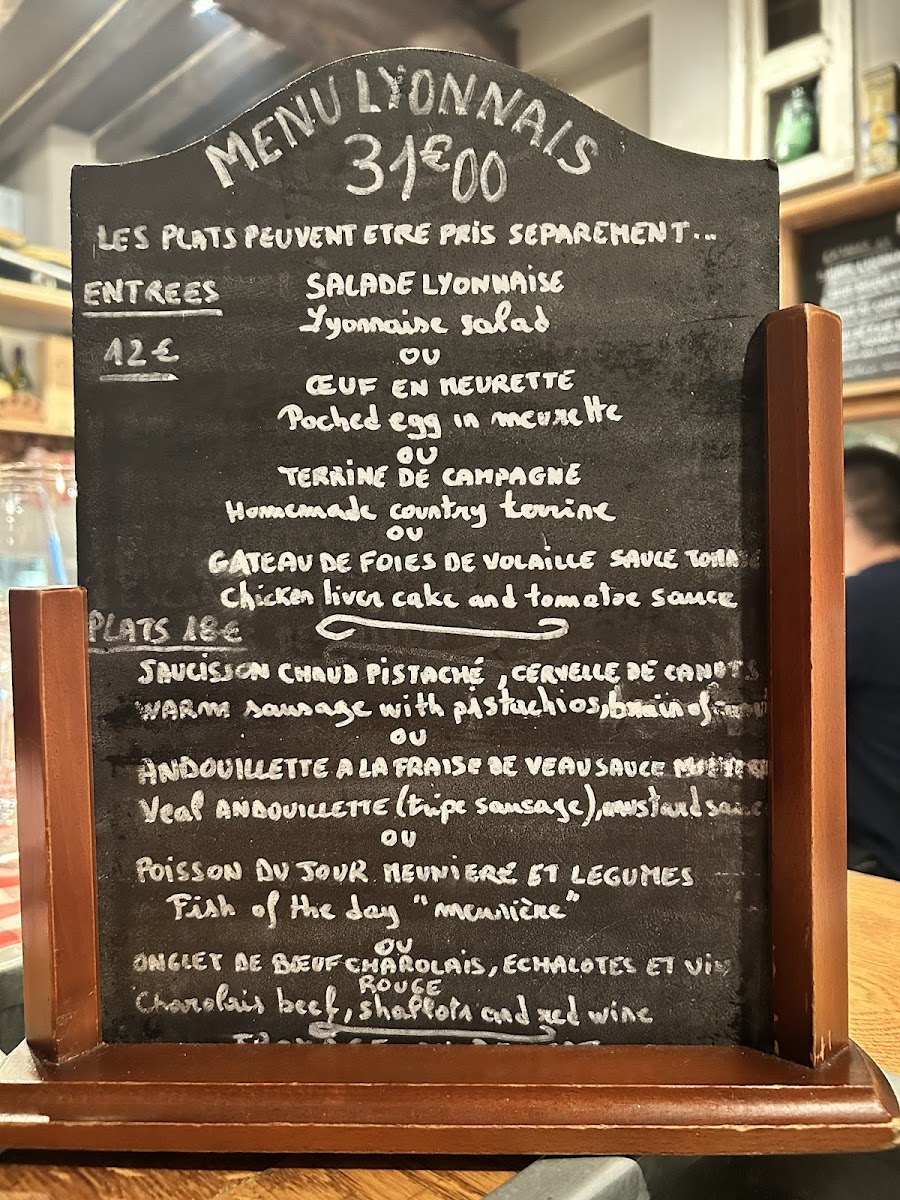 MENU LYONNAIS
31€00
LES PLATS PEUVENT ETRE PRIS SEPAREMENT...
ENTREES
12€
SALADE LYONNAISE
Lyonnaise salad
OU
ŒUF EN MEURETTE
Poched egg in meurette
OU
TERRINE DE CAMPAGNE
Homemade country terrine
OU
GATEAU DE FOIES DE VOLAILLE SAUCE
Chicken liver cake and tomatoe sauce
PLATS 18€
SAUCISSON CHAUD PISTACHÉ, CERVELLE DE CANUTS
WARM sausage with pistachios, brain of
OU
ANDOUILLETTE A LA FRAISE DE VEAU SAUCE
Veal ANDOUILLETTE (tripe sausage), mustard
OU
POISSON DU JOUR MEUNIERE ET LEGUMES
Fish of the day "meunière"
OU
ONGLET DE BŒUF CHAROLAIS, ECHALOTES ET VIN
ROUGE
Charolais beef, shallots and red wine